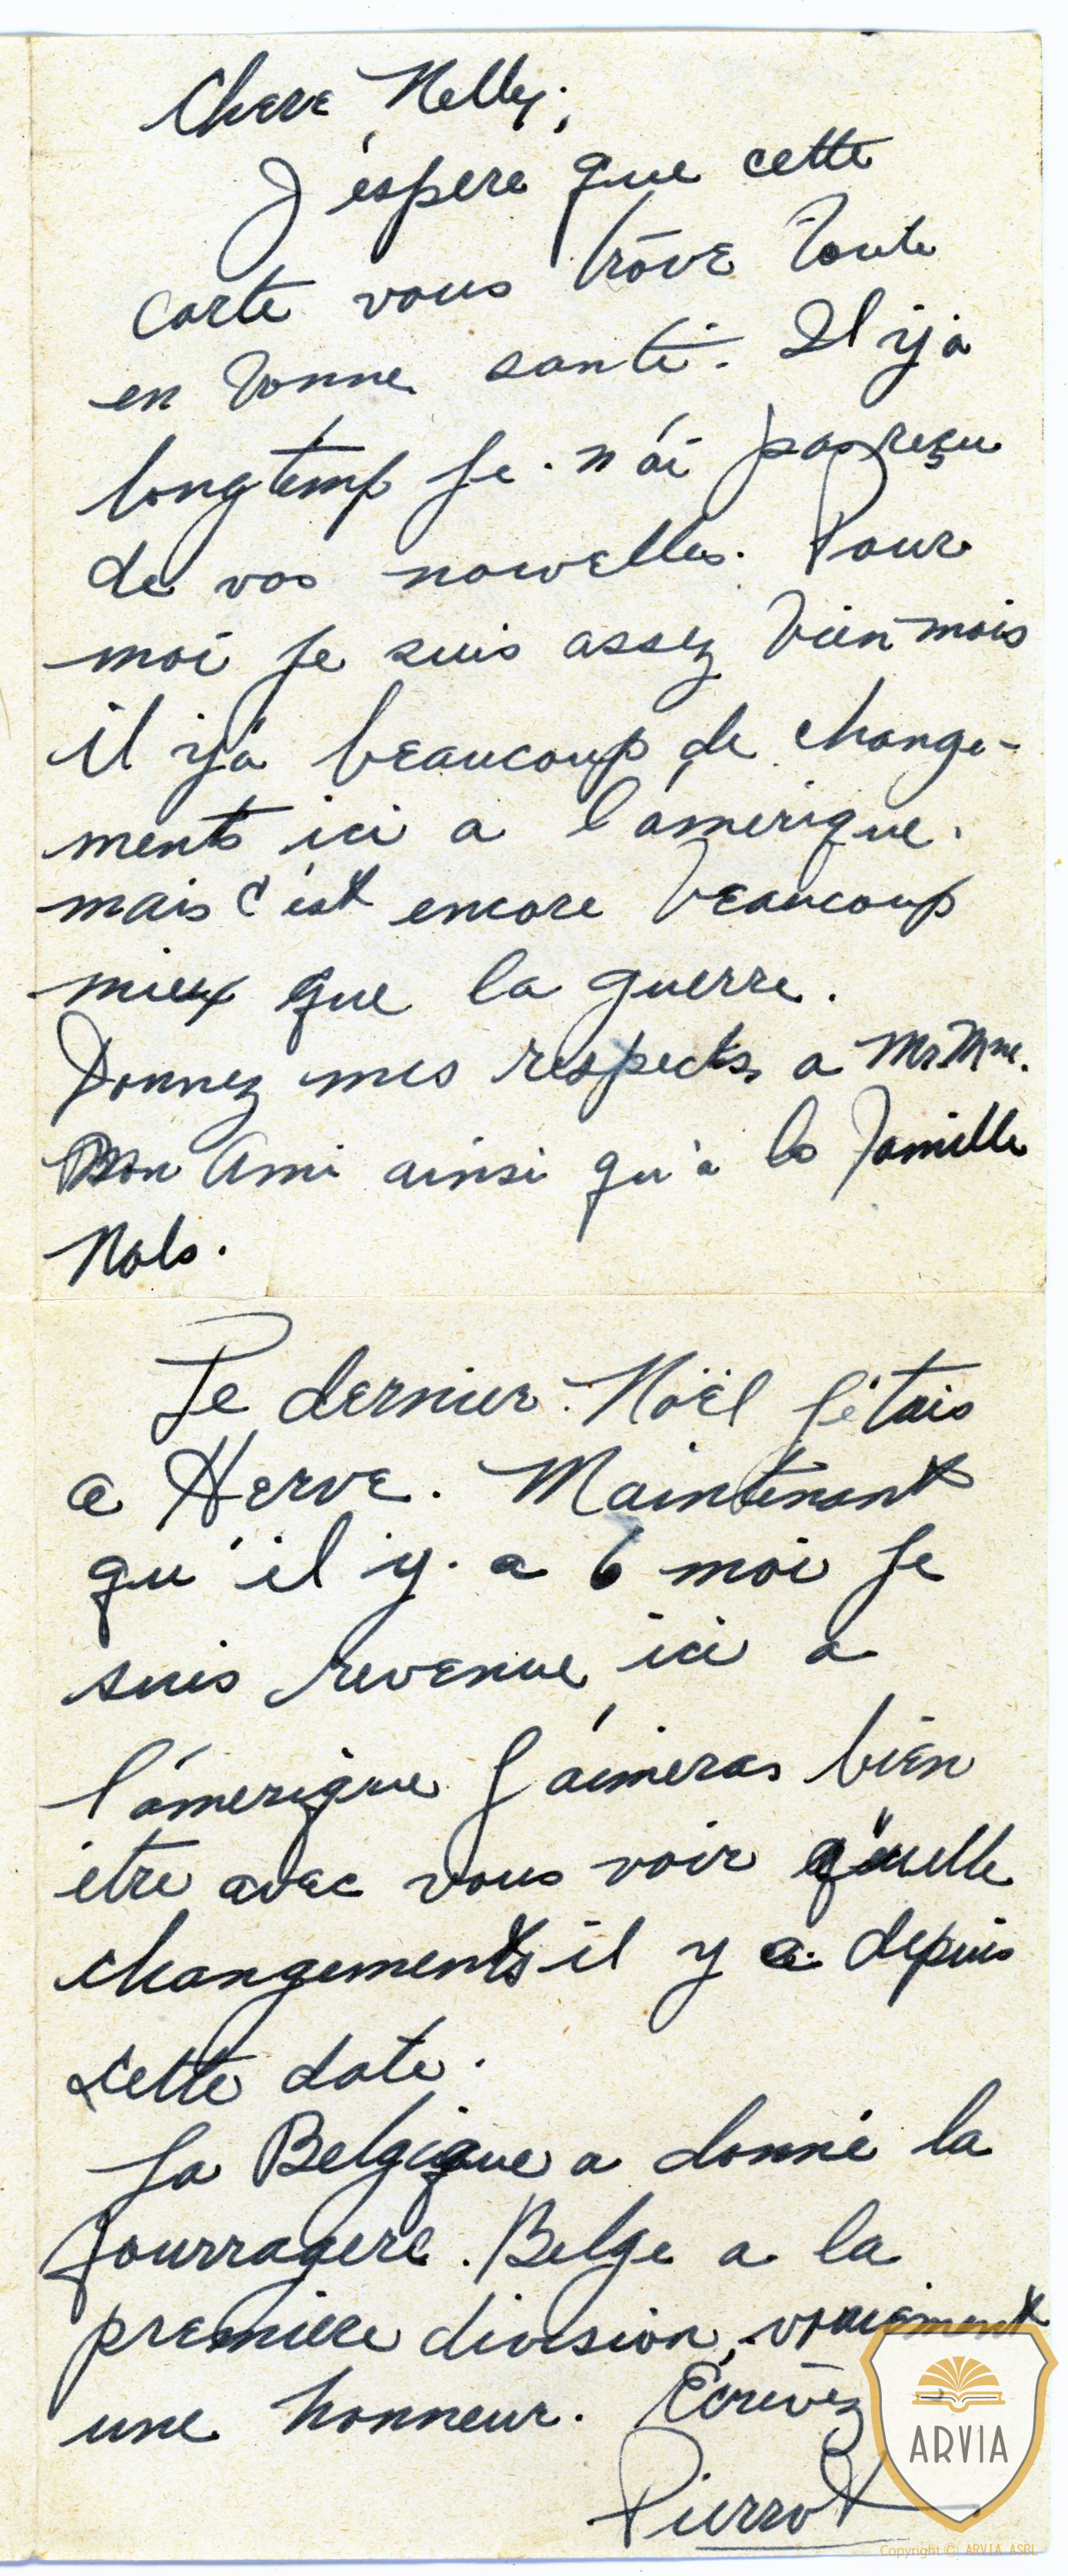 Chere Nelly;
J'éspere que cette
carte vous trōve toute
en bonne santé. Il ÿ a
longtemp je n'ai pas reçu
de vos nouvelles. Pour
moi je suis assez bien mais
il ÿ a beaucoup de change-
ments ici a l'amerique.
mais c'est encore beaucoup
mieux que la guerre.
Donnez mes respects a Mr. Mme.
Bon Ami ainsi qu'a la famille
Nols.
Le dernier Nöel j'étais
a Herve. Maintenant
qu'il y a 6 moi je
suis revenue ici a
l'amerique j'aimeras bien
etre avec vous voir quelle
changements il y a depuis
cette date.
La Belgique a donné la
fourragere Belge a la
premiere division, vraiement
une honneur. Ecrivez
Pierrot
ARVIA
Copyright © ARVIA ASBL